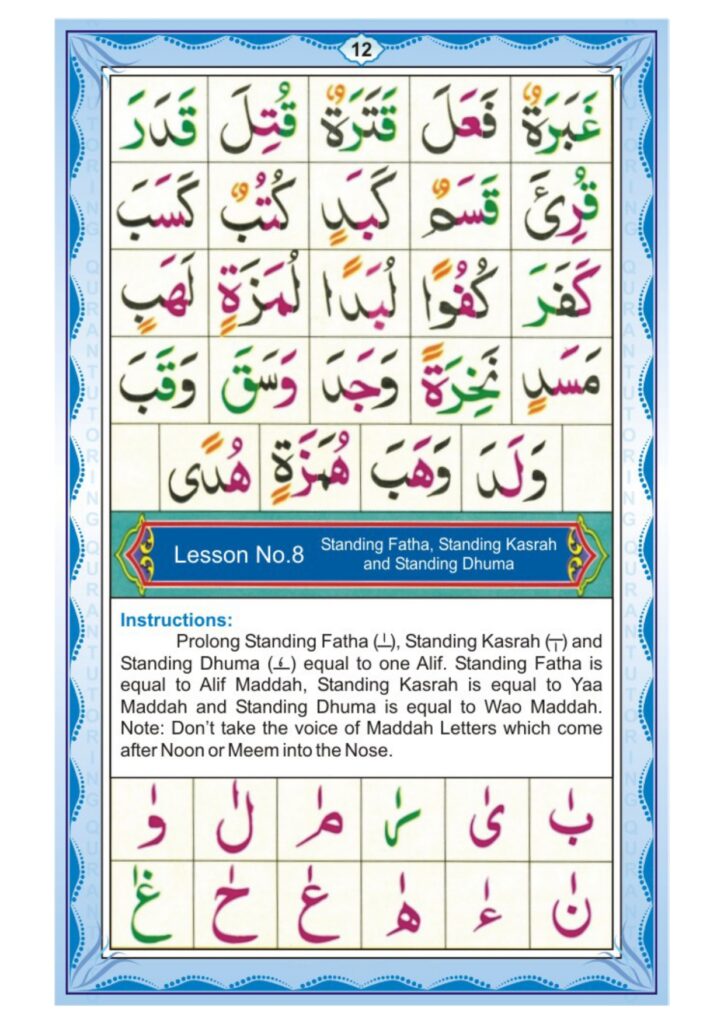 12
غَبَرَةٌ فَعَلَ قَتَرَةٌ قُتِلَ قَدَرَ
قُرِئَ قَسَمٌ كَبَدٍ كُتُبٌ كَسَبَ
كَفَرَ كُفُوًا لُبَدًا لُمَزَةٍ لَهَبٍ
مَسَدٍ نَخِرَةً وَجَدَ وَسَقَ وَقَبَ
وَلَدَ وَهَبَ هُمَزَةٍ هُدًى
Lesson No.8 Standing Fatha, Standing Kasrah
and Standing Dhuma
Instructions:
Prolong Standing Fatha (ـٰ), Standing Kasrah (ـٖ) and
Standing Dhuma (ـٗ) equal to one Alif. Standing Fatha is
equal to Alif Maddah, Standing Kasrah is equal to Yaa
Maddah and Standing Dhuma is equal to Wao Maddah.
Note: Don't take the voice of Maddah Letters which come
after Noon or Meem into the Nose.
بٰ یٰ رٰ مٰ لٰ وٰ
نٰ ءٰ هٰ عٰ حٰ غٰ
QURANTUTORING QURANTUTORING
QURANTUTORING QURANTUTORING